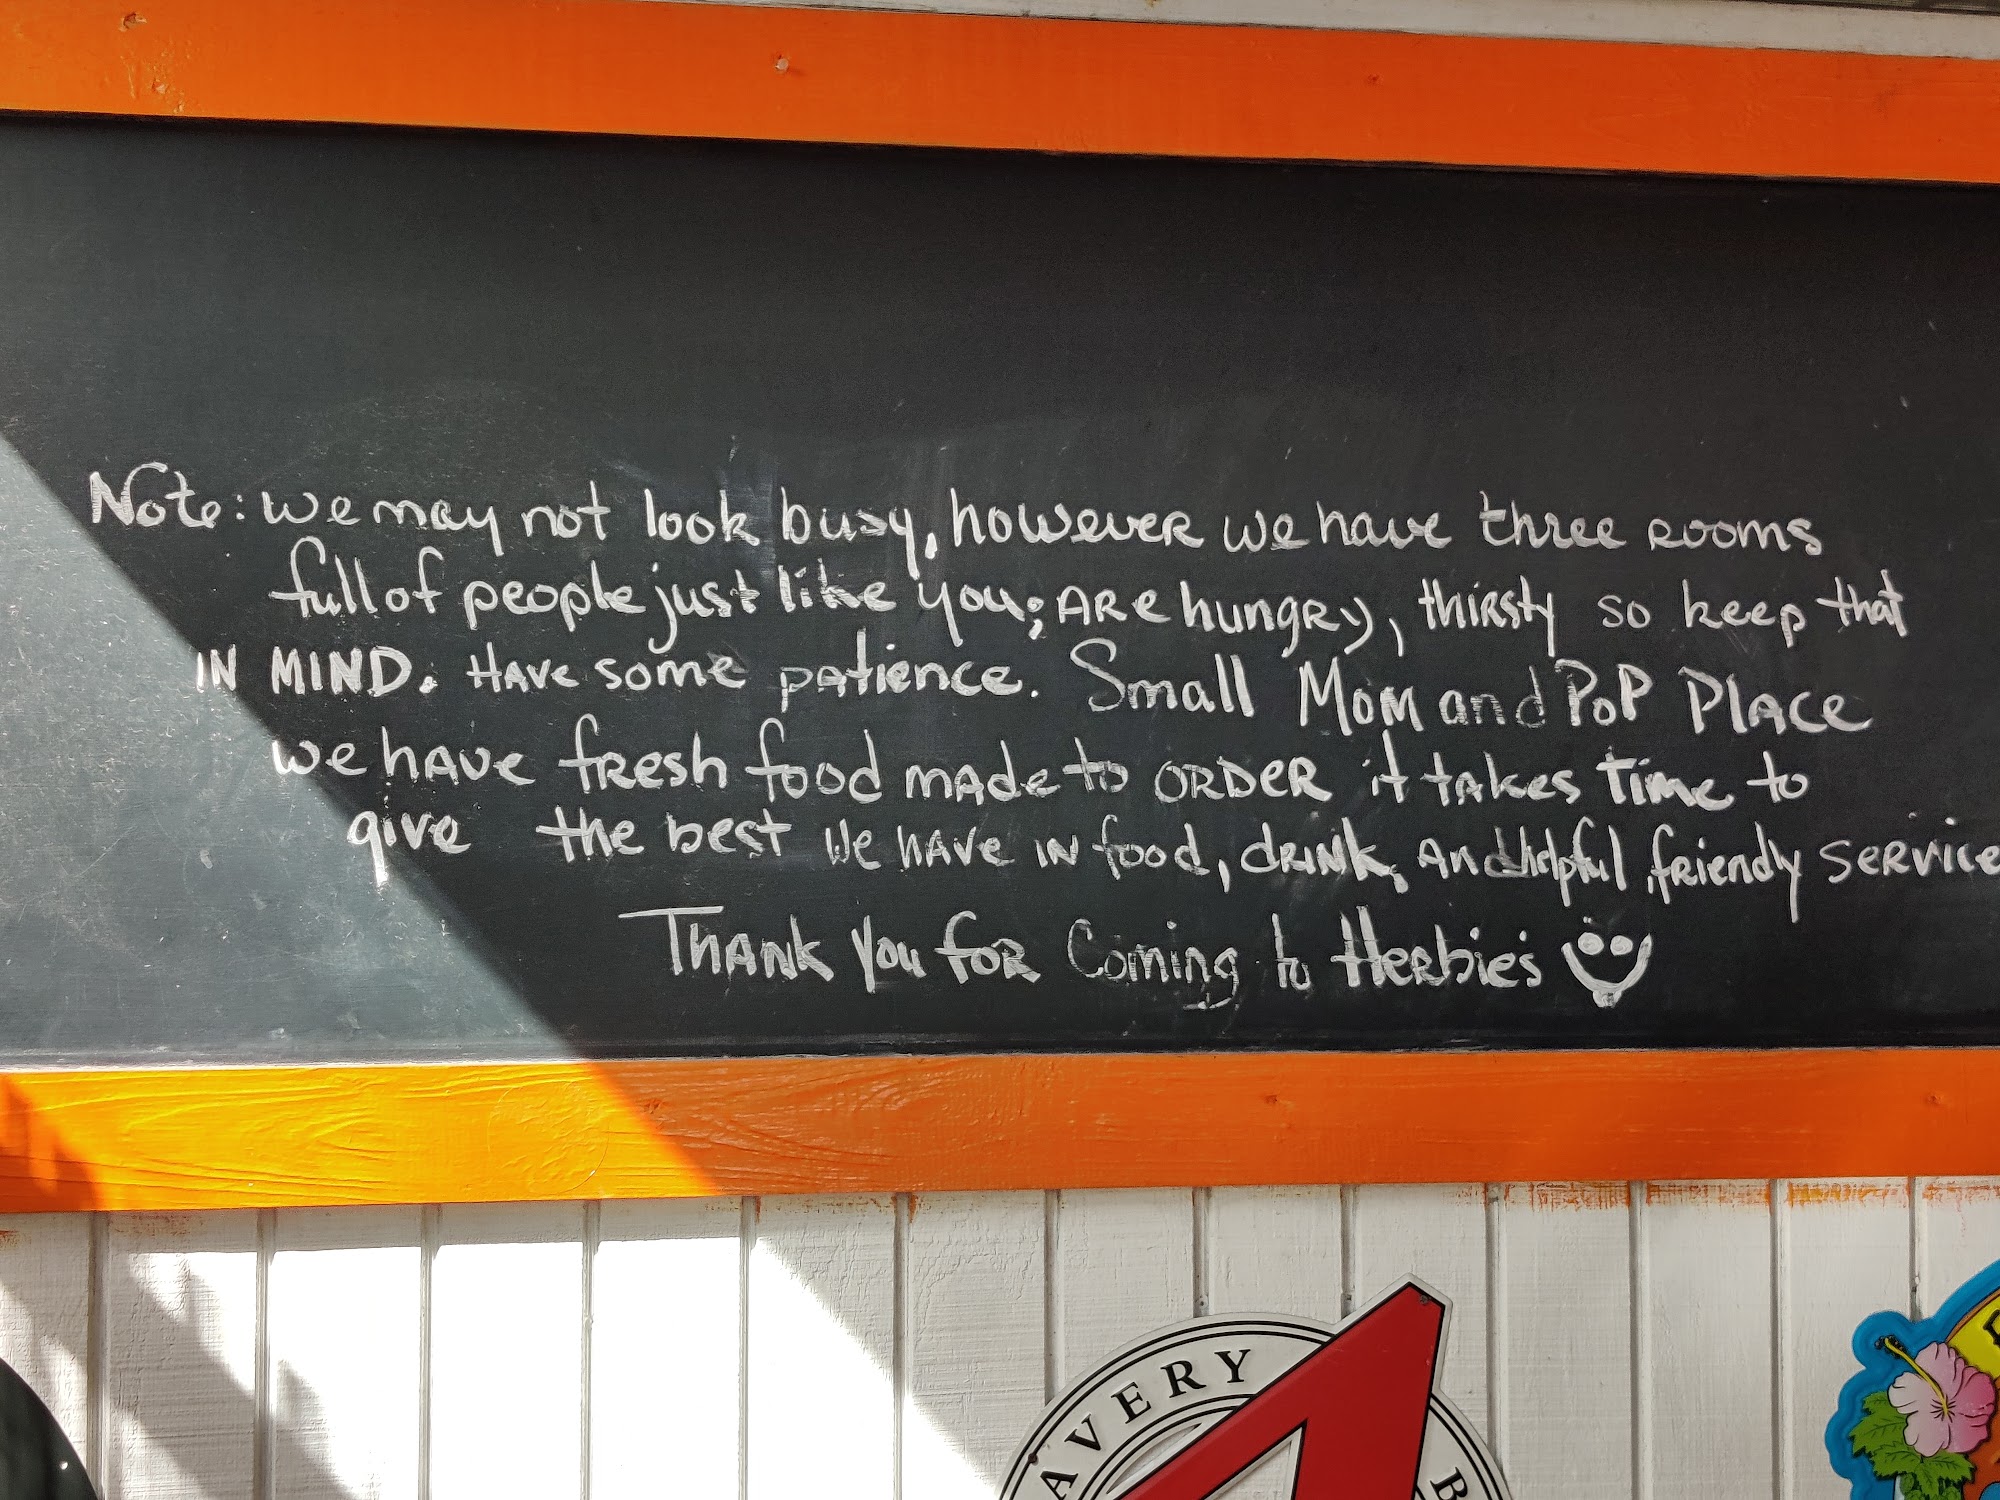 Note: we may not look busy, however we have three rooms
full of people just like you; are hungry, thirsty so keep that
IN MIND. Have some patience. Small Mom and PoP Place
we have fresh food made to ORDER it takes Time to
give the best We have in food, drink, and helpful, friendly service
Thank you for Coming to Herbie's
AVERY B